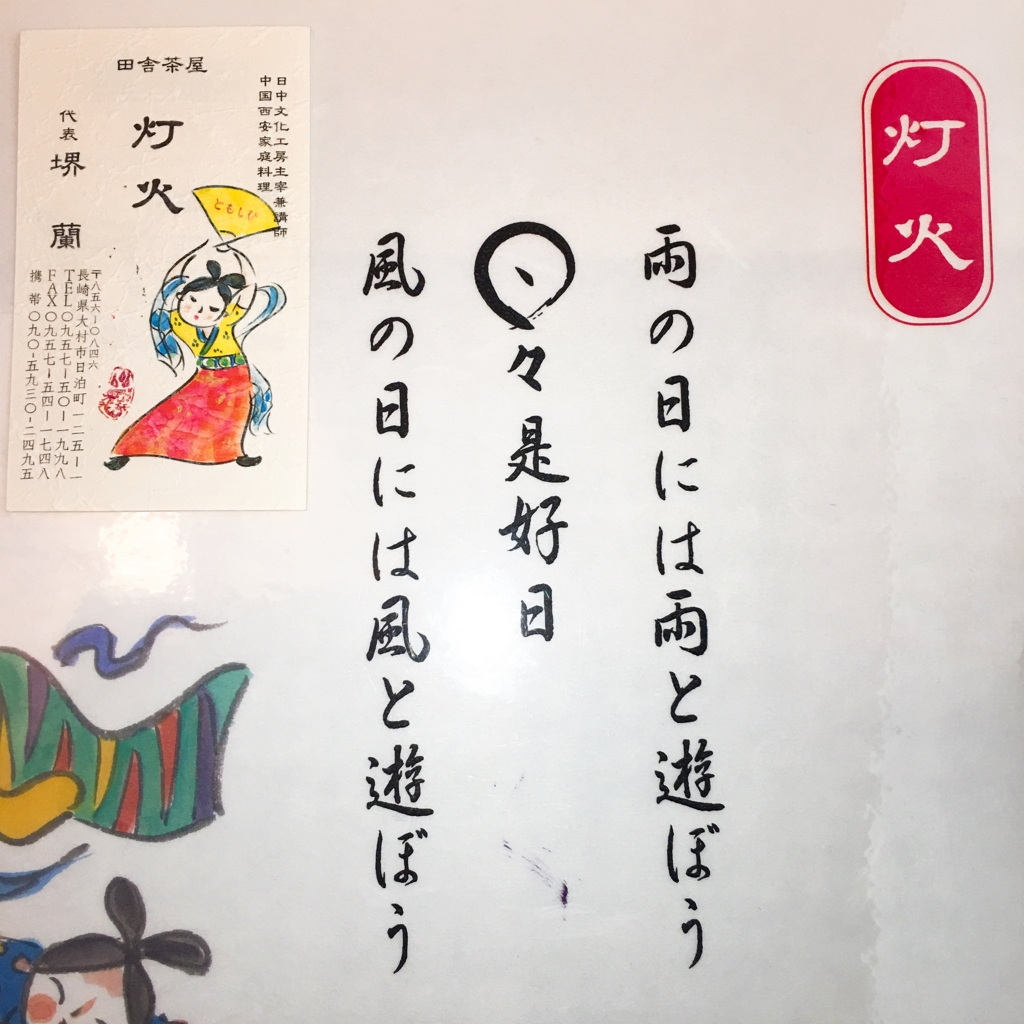 灯火
雨の日には雨と遊ぼう
日々是好日
風の日には風と遊ぼう
田舎茶屋
日中文化工房主宰兼講師
中国西安家庭料理
灯火
ともしび
代表 堺 蘭
〒八五六-〇八四六
長崎県大村市日泊町一二五-一
TEL〇九五七-五〇-一九九八
FAX〇九五七-五四-一七四八
携帯〇九〇-五九三〇-二四九五